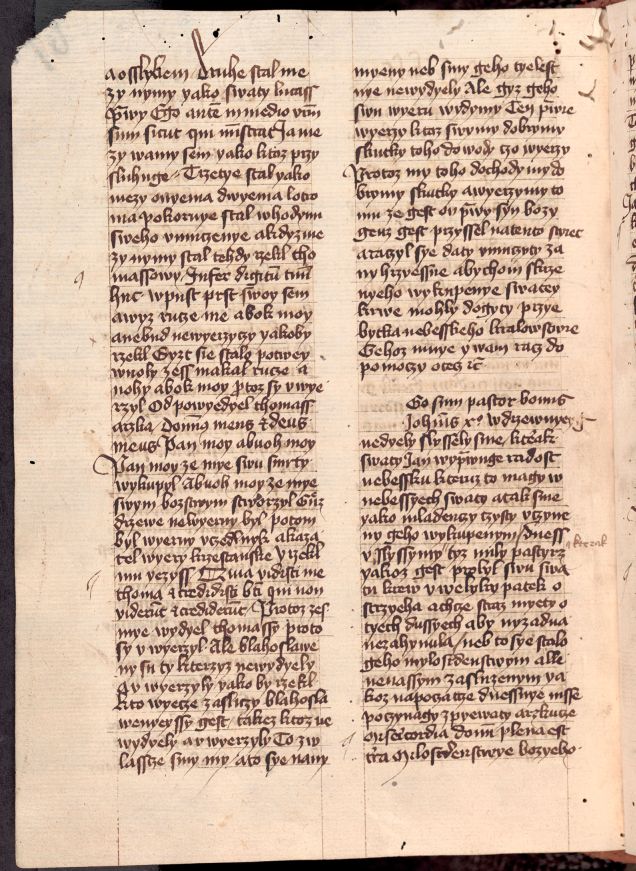 a osslykem Druhe stal me
zy nymy yako swaty lucass
prwy Ego autem in medio vrm
sum sicut qui ministrat Ja me
zy wamy sem yako ktoz przy
sluhuge Trzetye stal yako
mezy onyema dwyema lotro
ma pokornye stal whodynu
sweho vmuczenye a kdyz me
zy nymy stal tehdy rzekl tho
massowy Infer digitum tuum
huc wpust prst swoy sem
a wyz rucze me a bok moy
a nebud newyerzyczy yakoby
rzekl Gyzt sie stalo potwey
wuoly zess makal rucze a
nohy a bok moy proz sy vwye
rzyl Odpowyedyel thomass
arzka Dominus meus et deus
meus Pan moy a buoh moy
Pan moy ze mye swu smrty
wykupyl A buoh moy ze mye
swym bozstwym stworzyl Genz
drzewe newyerny byl potom
byl wyerny vczedlnyk a kaza
tel wyery krzestanske Vrzekl
mu yezyss Quia vidisti me
thoma et credidisti bti qui non
viderunt et crediderunt Protoz zes
mye wydyel thomassy proto
sy vwyerzyl Ale blahoslawe
ny su ty kterzyz newydyely
a vwyerzyly yako by rzekl
kto wyecze zasluzy blahosla
wenyeyssy gest takez ktoz ne
wydyely a vwyerzyly To zw
lasscze smy my ato sye namy
myeny neb smy geho tyelest
nye newydyely Ale gyz geho
swu wyeru wydymy Ten prwe
wyerzy ktoz swymy dobrymy
skutky toho dowody czo wyerzy
Protoz my toho dochody my do
brymy skutky a wyerzymy to
mu ze gest ov prwy syn bozy
genz gest przyssel na tento swiet
a raczyl sye daty vmuczyty za
ny hrzyessne abychom skrze
nyeho wykupenye swatey
krwe mohly dogyty przye
bytka nebesskeho kralowstwie
Gehoz mnye y wam racz do
pomoczy otecz etc
Ego sum pastor bonus
Johannis xo W drzewnyey
nedyely slyssely sme kterak
swaty Jan wyprwuge radost
nebessku kteruz to magy w
nebessyech swaty a tak sme
yako mladenczy czysty vczyne
ny geho wykupenym Dness
vslyssymy tyz mily pastyrz
yakoz gest prolyl swu swa
tu krew v welyky patek o
strzyeha achcze staz myety o
tyech dussyech aby nyzadna
nezahynula neb to sye stalo
geho mylosrdenstwym alle
ne nassym zasluzenym ya
koz napoczatcze dnessnye msse
poczynagy zpyewaty arzkucze
Misericordia domini plena est
terra Milosrdenstwye bozyeho
kterak